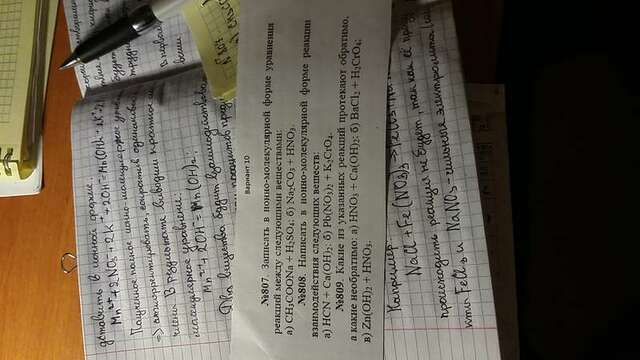 дставить в ионной форме.
Mn²⁺+2NO₃⁻+2K⁺+2OH⁻=Mn(OH)₂+2K⁺+2
Полученное полное ионно-молекулярное
=> сократив одинаковые
члены. В результате выводим краткое
молекулярное уравнение:
Mn²⁺+2OH⁻=Mn(OH)₂.
Два вещества будут взаимодействова
будет
В первом
№807
Вариант 10
№807. Записать в ионно-молекулярной форме уравнения
реакций между следующими веществами:
а) CH₃COONa + H₂SO₄; б) Na₂CO₃ + HNO₃.
№808. Написать в ионно-молекулярной форме реакции
взаимодействия следующих веществ:
а) HCN + Ca(OH)₂; б) Pb(NO₃)₂ + K₂CrO₄.
№809. Какие из указанных реакций протекают обратимо,
а какие необратимо: а) HNO₃ + Ca(OH)₂; б) BaCl₂ + H₂CrO₄;
в) Zn(OH)₂ + HNO₃.
Например:
NaCl+Fe(NO₃)₃→FeCl₃+Na
происходить реакция не будет, так как её проду
кты FeCl₃ и NaNO₃-сильные электролиты